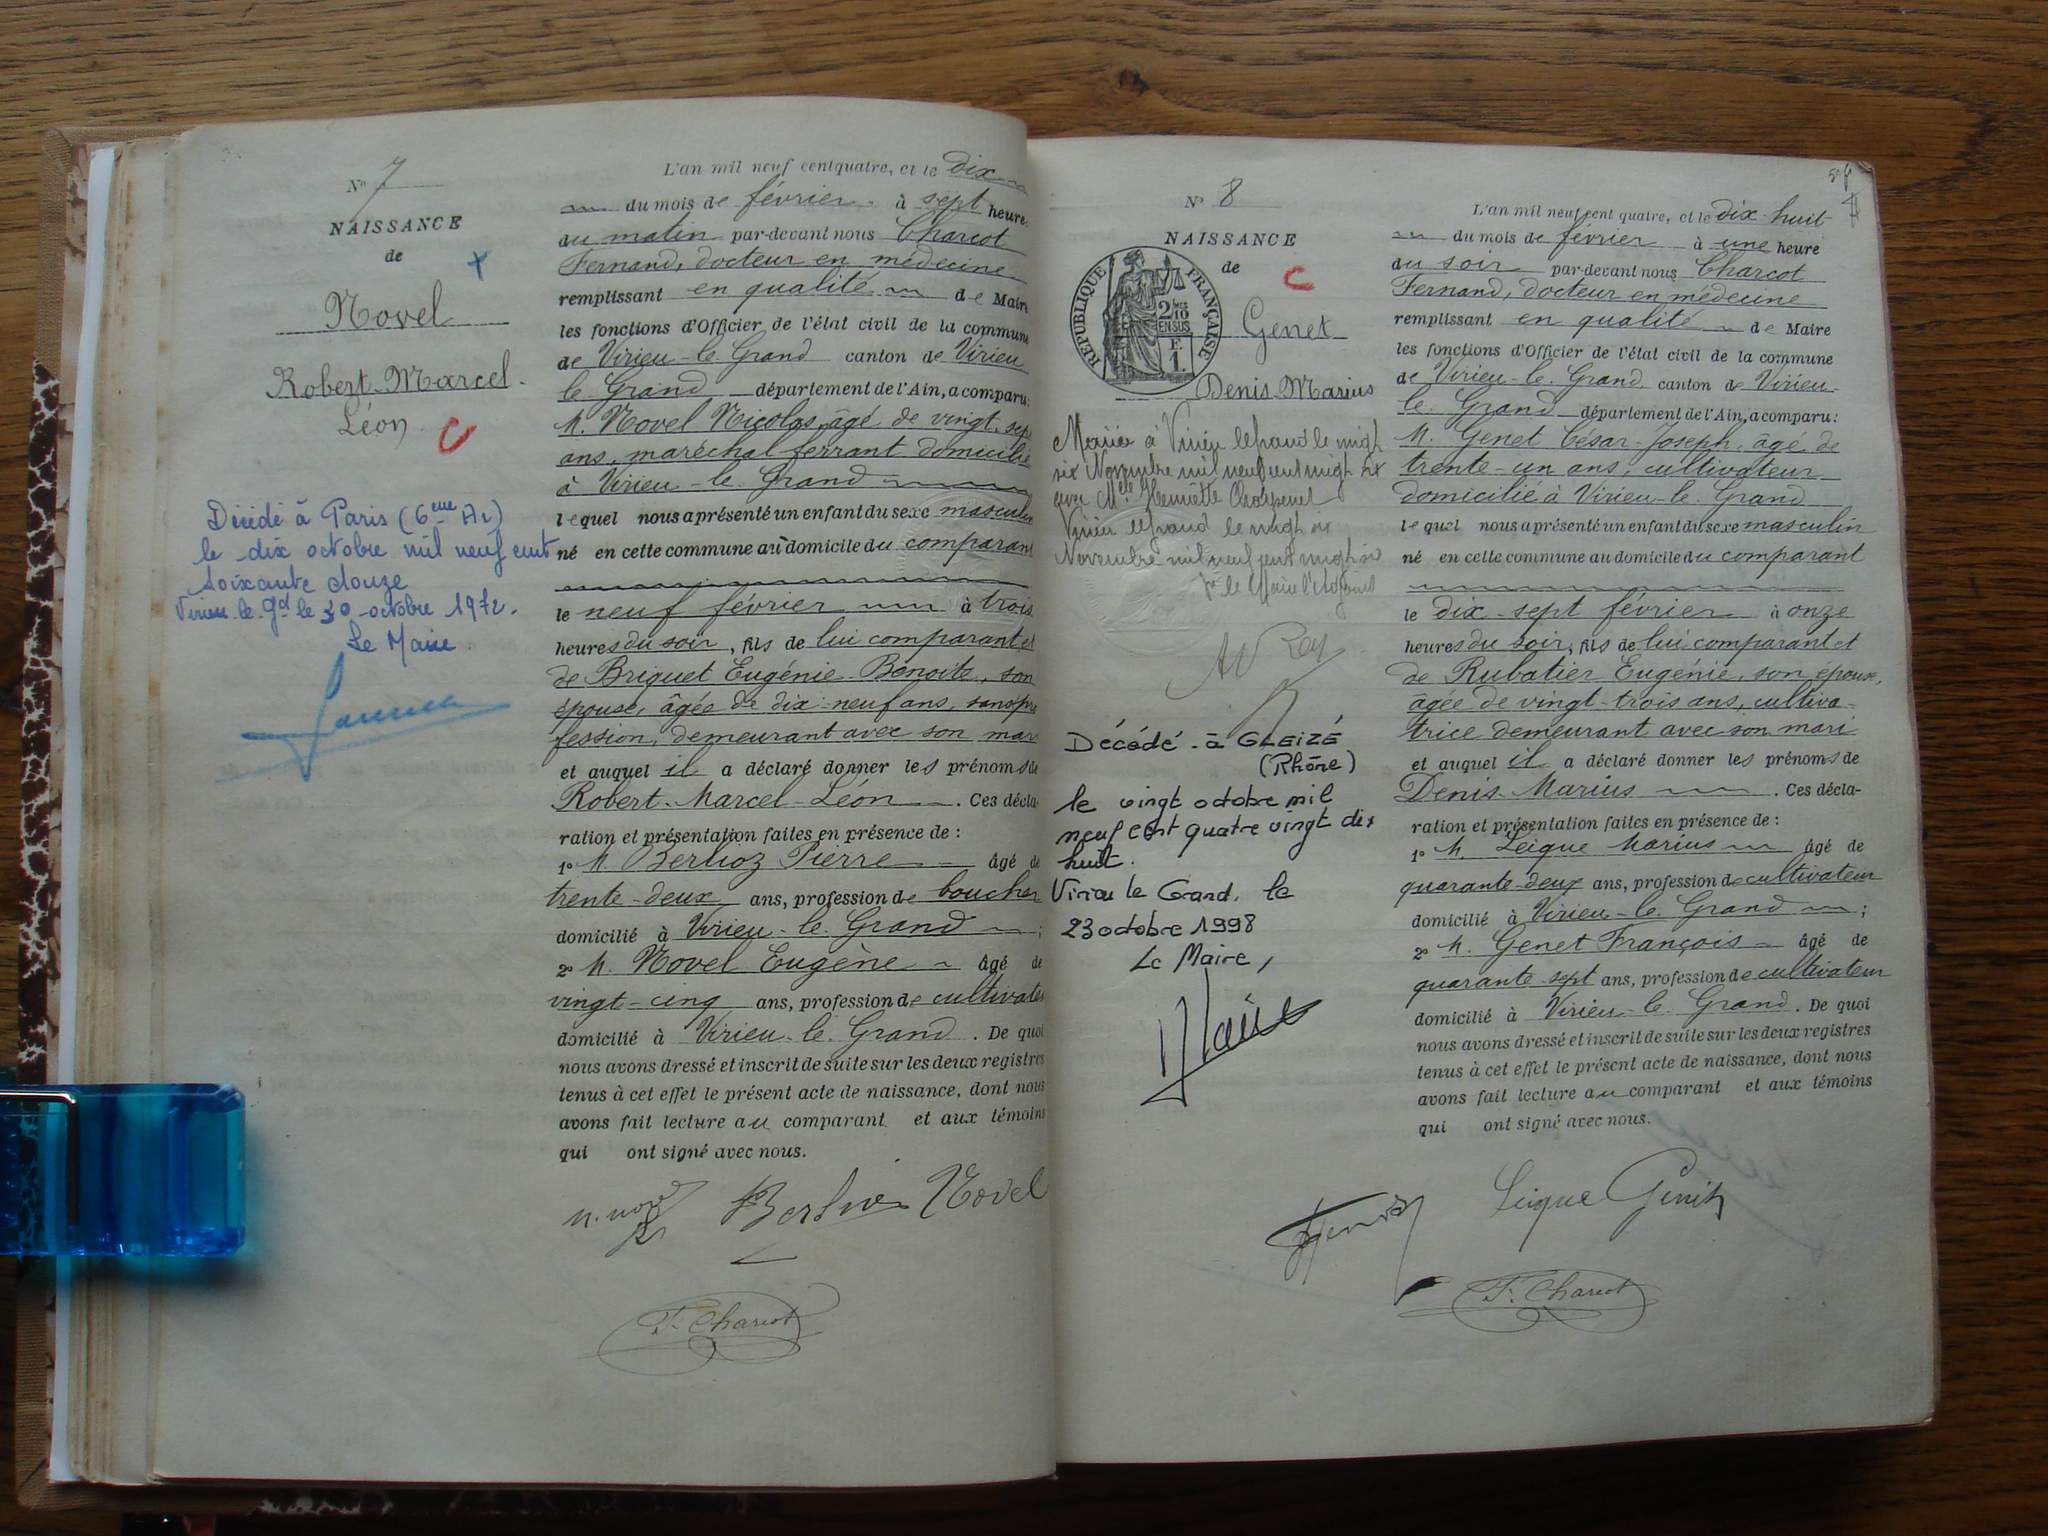 N° 7
NAISSANCE
de
Novel
Robert-Marcel-
Léon
Décédé à Paris (6eme Ar)
le dix octobre mil neuf cent
soixante douze
Virieu-le-Gd le 30 octobre 1972.
Le Maire
L'an mil neuf cent quatre, et le dix
du mois de février à sept heures
du matin par-devant nous Charcot
Fernand, docteur en médecine
remplissant en qualité de Maire
les fonctions d'Officier de l'état civil de la commune
de Virieu-le-Grand canton de Virieu
le Grand département de l'Ain, a comparu:
M. Novel Nicolas, âgé de vingt-sept
ans, maréchal ferrant domicilié
à Virieu-le-Grand
lequel nous a présenté un enfant du sexe masculin
né en cette commune au domicile du comparant
le neuf février à trois
heures du soir, fils de lui comparant et
de Briquet Eugénie-Benoite, son
épouse, âgée de dix-neuf ans, sans pro
fession, demeurant avec son mari
et auquel il a déclaré donner les prénoms de
Robert-Marcel-Léon. Ces décla-
ration et présentation faites en présence de :
1° M. Berlioz Pierre âgé de
trente-deux ans, profession de boucher
domicilié à Virieu-le-Grand ;
2° M. Novel Eugène âgé de
vingt-cinq ans, profession de cultivateur
domicilié à Virieu-le-Grand. De quoi
nous avons dressé et inscrit de suite sur les deux registres
tenus à cet effet le présent acte de naissance, dont nous
avons fait lecture au comparant et aux témoins
qui ont signé avec nous.
N. Novel Berlioz Novel
F. Charcot
N° 8
NAISSANCE
de
RÉPUBLIQUE FRANÇAISE
2/10 EN SUS
F. 1.
Genet
Denis-Marius
Marié à Virieu le grand le vingt
six Novembre mil neuf cent vingt six
avec Mlle Henriette Charpenel
Virieu le grand le vingt six
Novembre mil neuf cent vingt six
Décédé à GLEIZÉ
(Rhône)
le vingt octobre mil
neuf cent quatre vingt dix
huit.
Virieu le Grand, le
23 octobre 1998
Le Maire,
L'an mil neuf cent quatre, et le dix-huit
du mois de février à une heure
du soir par-devant nous Charcot
Fernand, docteur en médecine
remplissant en qualité de Maire
les fonctions d'Officier de l'état civil de la commune
de Virieu-le-Grand canton de Virieu-
le-Grand département de l'Ain, a comparu:
M. Genet César-Joseph, âgé de
trente-un ans, cultivateur
domicilié à Virieu-le-Grand
lequel nous a présenté un enfant du sexe masculin
né en cette commune au domicile du comparant
le dix-sept février à onze
heures du soir, fils de lui comparant et
de Rubatier Eugénie, son épouse,
âgée de vingt-trois ans, cultiva-
trice demeurant avec son mari
et auquel il a déclaré donner les prénoms de
Denis-Marius. Ces décla-
ration et présentation faites en présence de :
1° M. Leique Marius âgé de
quarante-deux ans, profession de cultivateur
domicilié à Virieu-le-Grand ;
2° M. Genet François âgé de
quarante-sept ans, profession de cultivateur
domicilié à Virieu-le-Grand. De quoi
nous avons dressé et inscrit de suite sur les deux registres
tenus à cet effet le présent acte de naissance, dont nous
avons fait lecture au comparant et aux témoins
qui ont signé avec nous.
Leique
F. Charcot